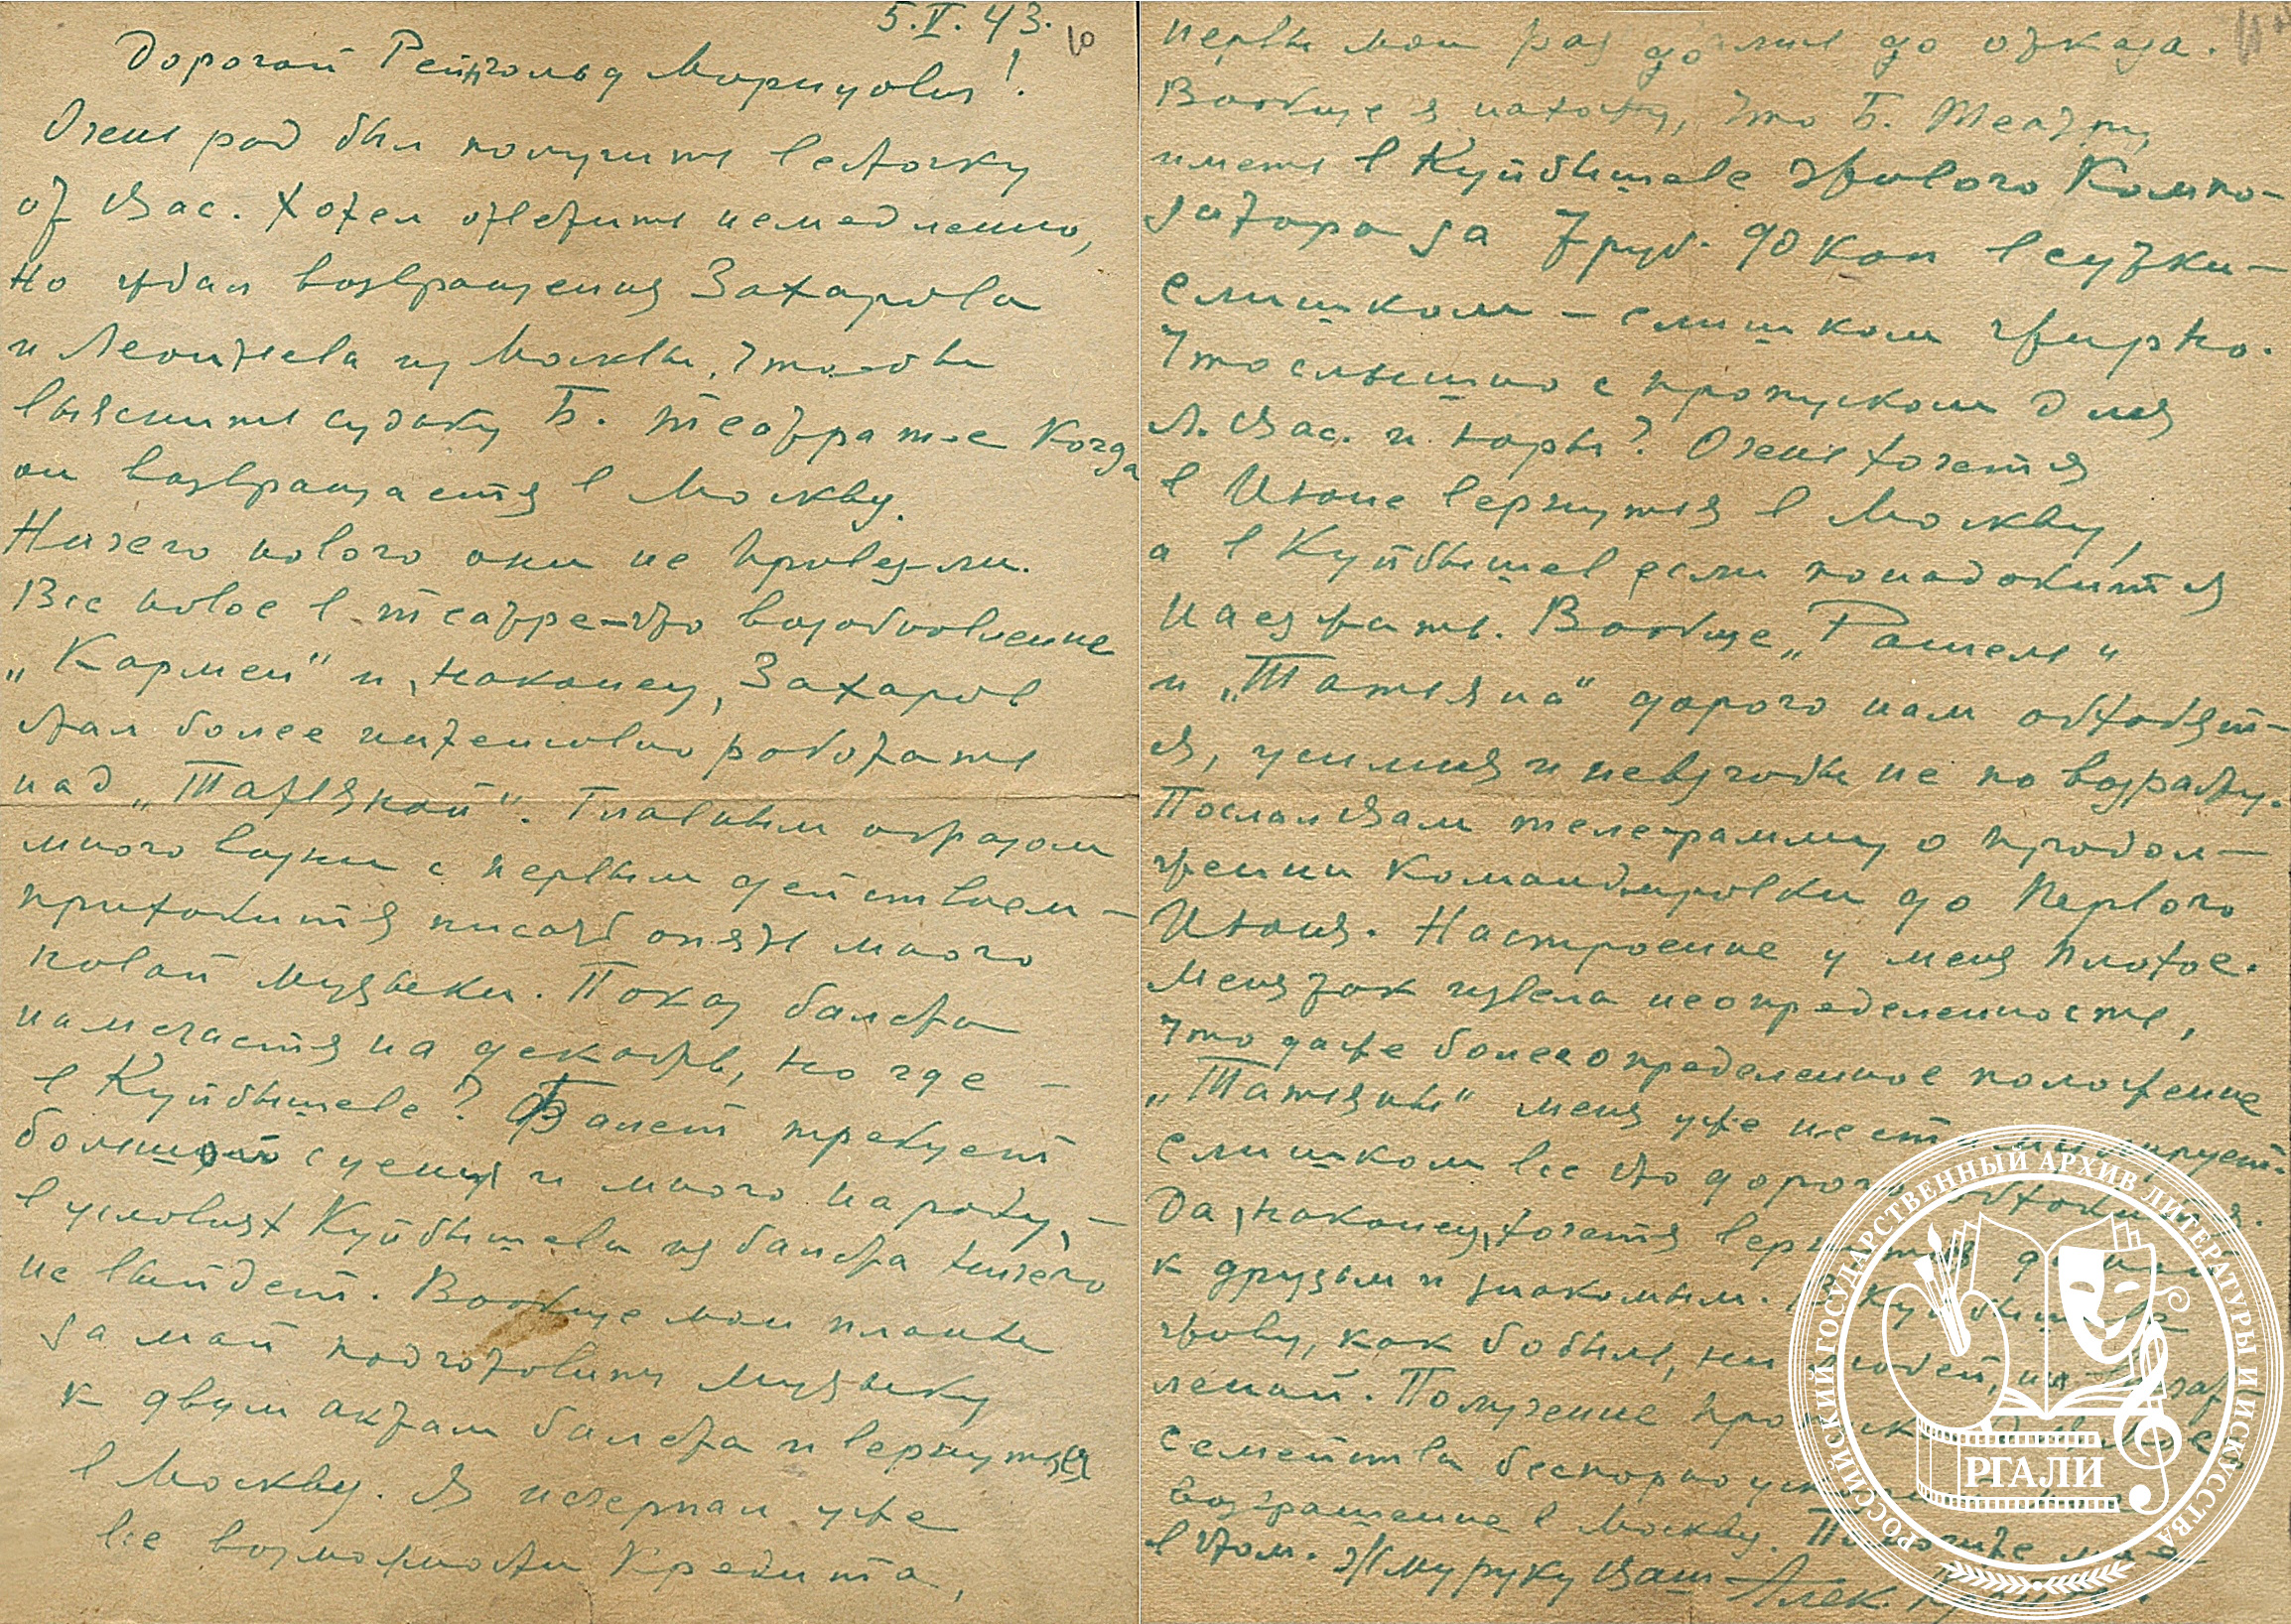 5.V.43.
10
Дорогой Рейнгольд Морицович!
Очень рад был получить весточку
от Вас. Хотел ответить немедленно,
но ждал возвращения Захарова
и Леонтьева из Москвы, чтобы
выяснить судьбу Б. театра т.е когда
он возвращается в Москву.
Ничего нового они не привезли.
Все новое в театре – это возобновление
„Кармен" и, наконец, Захаров
стал более интенсивно работать
над „Татьяной". Главным образом
много возни с первым действием –
приходится писать опять много
новой музыки. Показ балета
намечается на декабрь, но где –
в Куйбышеве? Балет требует
большой сцены и много народу, –
в условиях Куйбышева из балета ничего
не выйдет. Вообще мои планы
за май подготовить музыку
к двум актам балета и вернуться
в Москву. Я исчерпал уже
все возможности кредита,
нервы мои раз до до отказа.
Вообще я нахожу, что Б. Театру
иметь в Куйбышеве живого компо-
зитора за 7 руб. 90 коп в сутки –
слишком – слишком жирно.
Что слышно с пропуском для
Л. Вас. и Норы? Очень хочется
в Июне вернуться в Москву,
а в Куйбышев если понадобится
наезжать. Вообще „Рашель"
и „Татьяна" дорого нам обходят-
ся, усилия и невзгоды не по возрасту.
Послал Вам телеграмму о продол-
жении командировки до первого
Июня. Настроение у меня плохое.
Меня так извела неопределенность,
что даже более определенное положение
„Татьяны" меня уже не стимулирует.
слишком все это дорого обходится.
Да, наконец, хочется вернуться домой
к друзьям и знакомым. В Куйбышеве
живу, как бобыль, ни людей, ни
Получение пропуска для моего
семейства бесспорно ускорит
возвращение в Москву. Помогите мне
в этом. Жму руку Ваш Алек.
РОССИЙСКИЙ ГОСУДАРСТВЕННЫЙ АРХИВ ЛИТЕРАТУРЫ И ИСКУССТВА
РГАЛИ